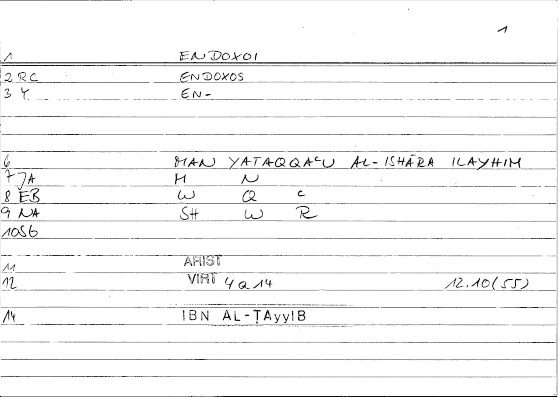 1
1 ENDOXOI
2 RC ENDOXOS
3 Y. EN-
6 MAN YATAQQAᶜU AL-ISHĀRA ILAYHIM
7 JA M N
8 EB W Q ᶜ
9 NA SH W R
10 SG
11 ARIST
12 VIRT 4 a 14 12.10 (55)
14 IBN AL-ṬAyyIB